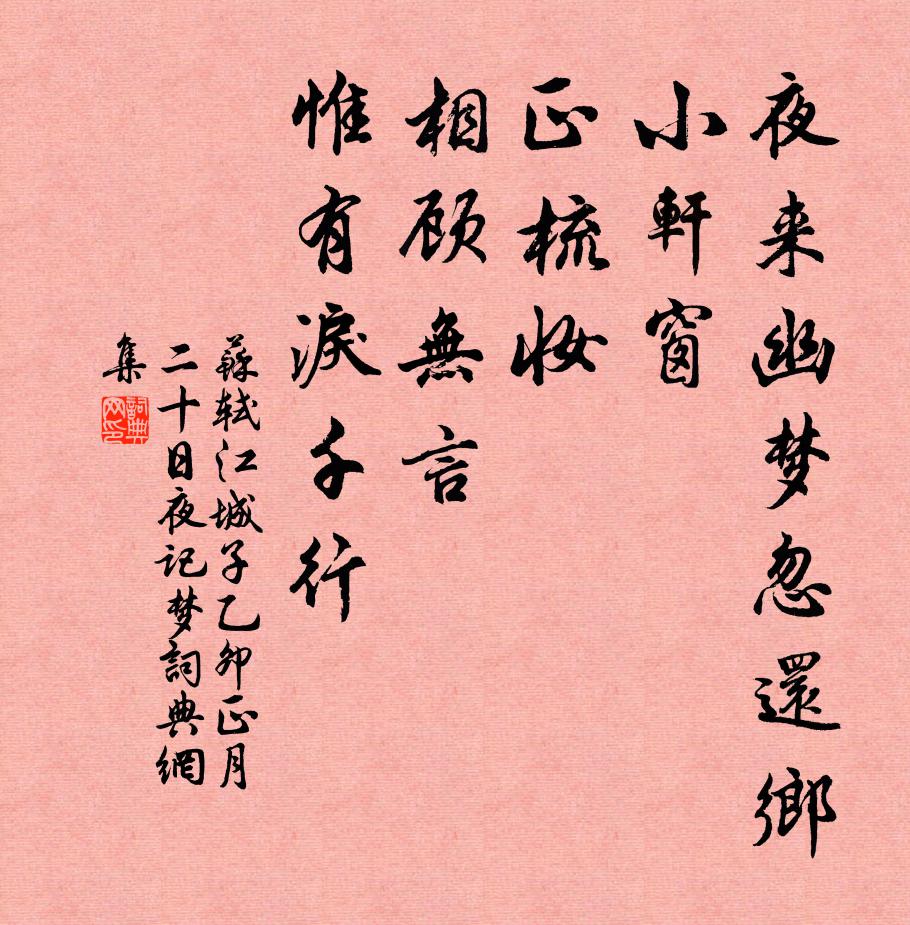 夜来幽梦忽還鄉
小軒窗
正梳妝
相顾無言
惟有淚千行
蘇軾江城子乙卯正月
二十日夜记梦詞典網
集
詞典
网印